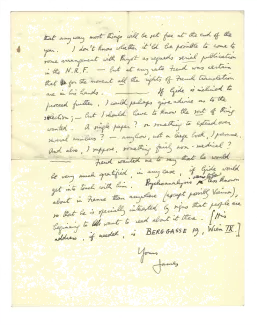 that anyway most things will be set free at the end of the
year. I don't know whether it'ld be possible to come to
some arrangement with Payot as regards serial publication
in the N.R.F. — but at any rate Freud was certain
that for the moment all the rights of French translation
are in his hands. — If Gide is inclined to
proceed further, I could perhaps give advice as to the
selection; — but I should have to know the sort of thing
wanted. A single paper? or something to extend over
several numbers? — anyhow, not a large book, I presume.
And also, I suppose, something fairly non-medical?
Freud wanted me to say that he would
be very much gratified, in any case, if Gide would
get into touch with him. Psychoanalysis is less known
about in France than anywhere (except possibly Vienna),
so that he is specially interested by signs that people are
beginning to want to read about it there. [His
address, if needed, is BERGGASSE 19, Wien IX.]
Yours
James